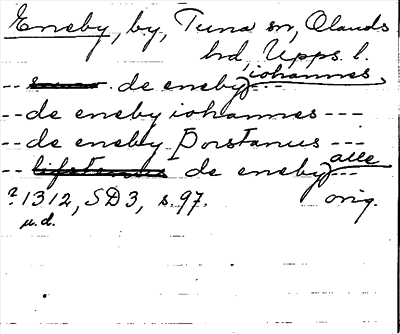 Eneby, by, Tuna sn, Olands
hd, Upps. l.
-- de eneby iohannes ---
-- de eneby iohannes ---
-- de eneby Þorstanus ---
-- lifstanus de eneby alle ---
? 1312, SD3, s. 97. orig.
u.d.